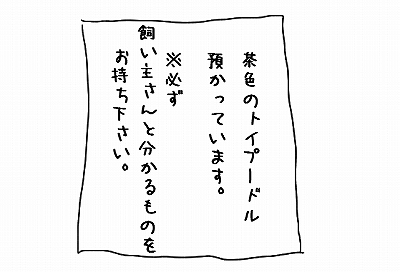 茶色のトイプードル
預かっています。
※必ず
飼い主さんと分かるものを
お持ち下さい。